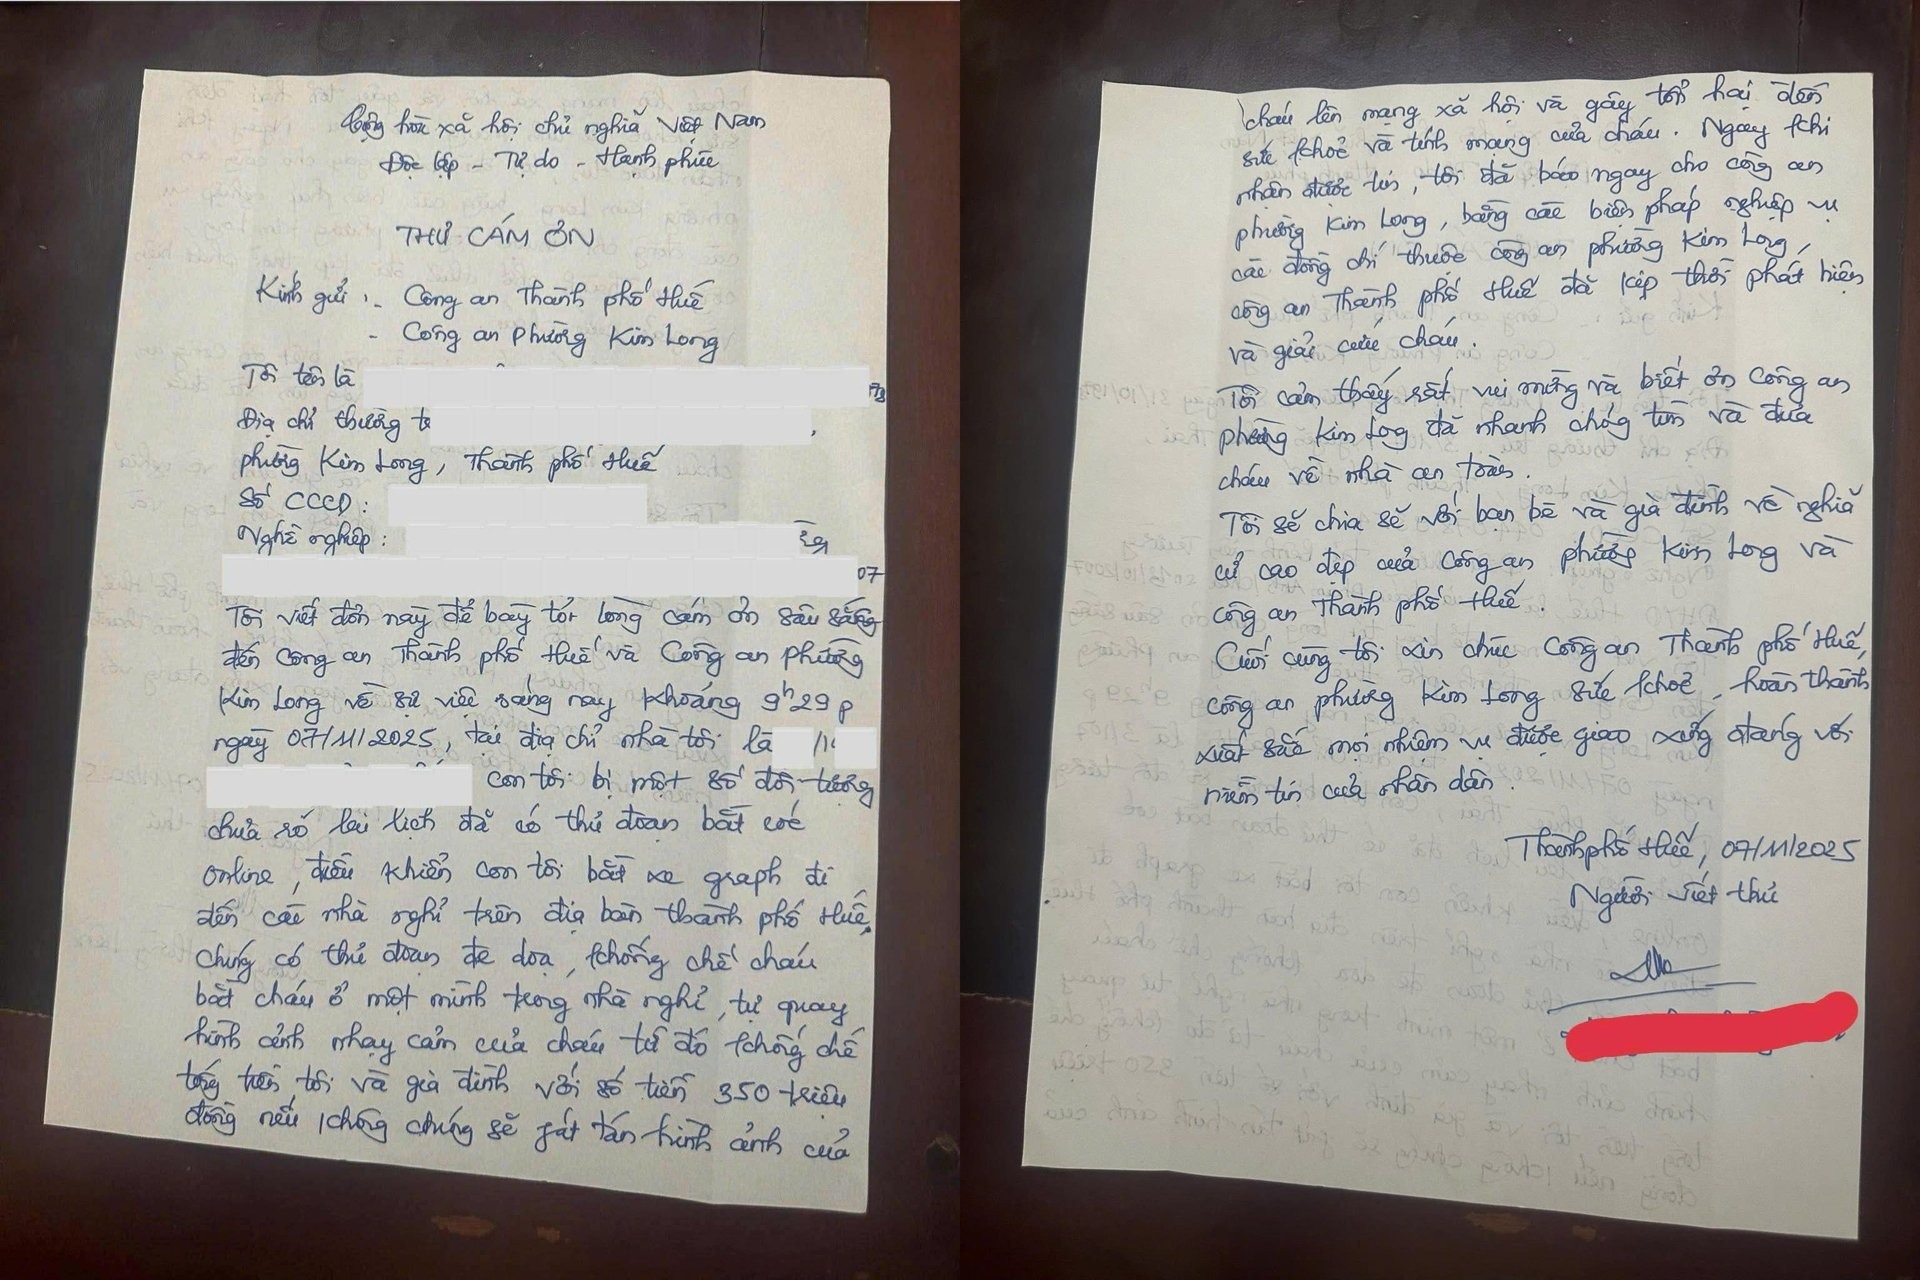 Cộng hòa xã hội chủ nghĩa Việt Nam
Độc lập - Tự do - Hạnh phúc
THƯ CÁM ƠN
Kính gửi: - Công an Thành phố Huế
- Công an Phường Kim Long
Tôi tên là
Địa chỉ thường t
phường Kim Long, Thành phố Huế
Số CCCD:
Nghề nghiệp:
07
Tôi viết đơn này để bày tỏ lòng cám ơn sâu sắc
đến Công an Thành phố Huế và Công an Phường
Kim Long về sự việc sáng nay khoảng 9h29p
ngày 07/11/2025, tại địa chỉ nhà tôi là
con tôi bị một số đối tượng
chưa rõ lai lịch đã có thủ đoạn bắt cóc
online, điều khiển con tôi bắt xe graph đi
đến các nhà nghỉ trên địa bàn thành phố Huế,
chúng có thủ đoạn đe dọa, khống chế cháu
bắt cháu ở một mình trong nhà nghỉ, tự quay
hình ảnh nhạy cảm của cháu từ đó khống chế
tống tiền tôi và gia đình với số tiền 350 triệu
đồng nếu không chúng sẽ phát tán hình ảnh của
cháu lên mạng xã hội và gây tổn hại đến
sức khoẻ và tính mạng của cháu. Ngay khi
nhận được tin, tôi đã báo ngay cho công an
phường Kim Long, bằng các biện pháp nghiệp vụ
các đồng chí thuộc công an phường Kim Long,
công an Thành phố Huế đã kịp thời phát hiện
và giải cứu cháu.
Tôi cảm thấy rất vui mừng và biết ơn Công an
phường Kim Long đã nhanh chóng tìm và đưa
cháu về nhà an toàn.
Tôi sẽ chia sẽ với bạn bè và gia đình về nghĩa
cử cao đẹp của Công an phường Kim Long và
công an Thành phố Huế.
Cuối cùng tôi xin chúc Công an Thành phố Huế,
công an phường Kim Long sức khoẻ, hoàn thành
xuất sắc mọi nhiệm vụ được giao xứng đáng với
niềm tin của nhân dân.
Thành phố Huế, 07/11/2025
Người viết thư